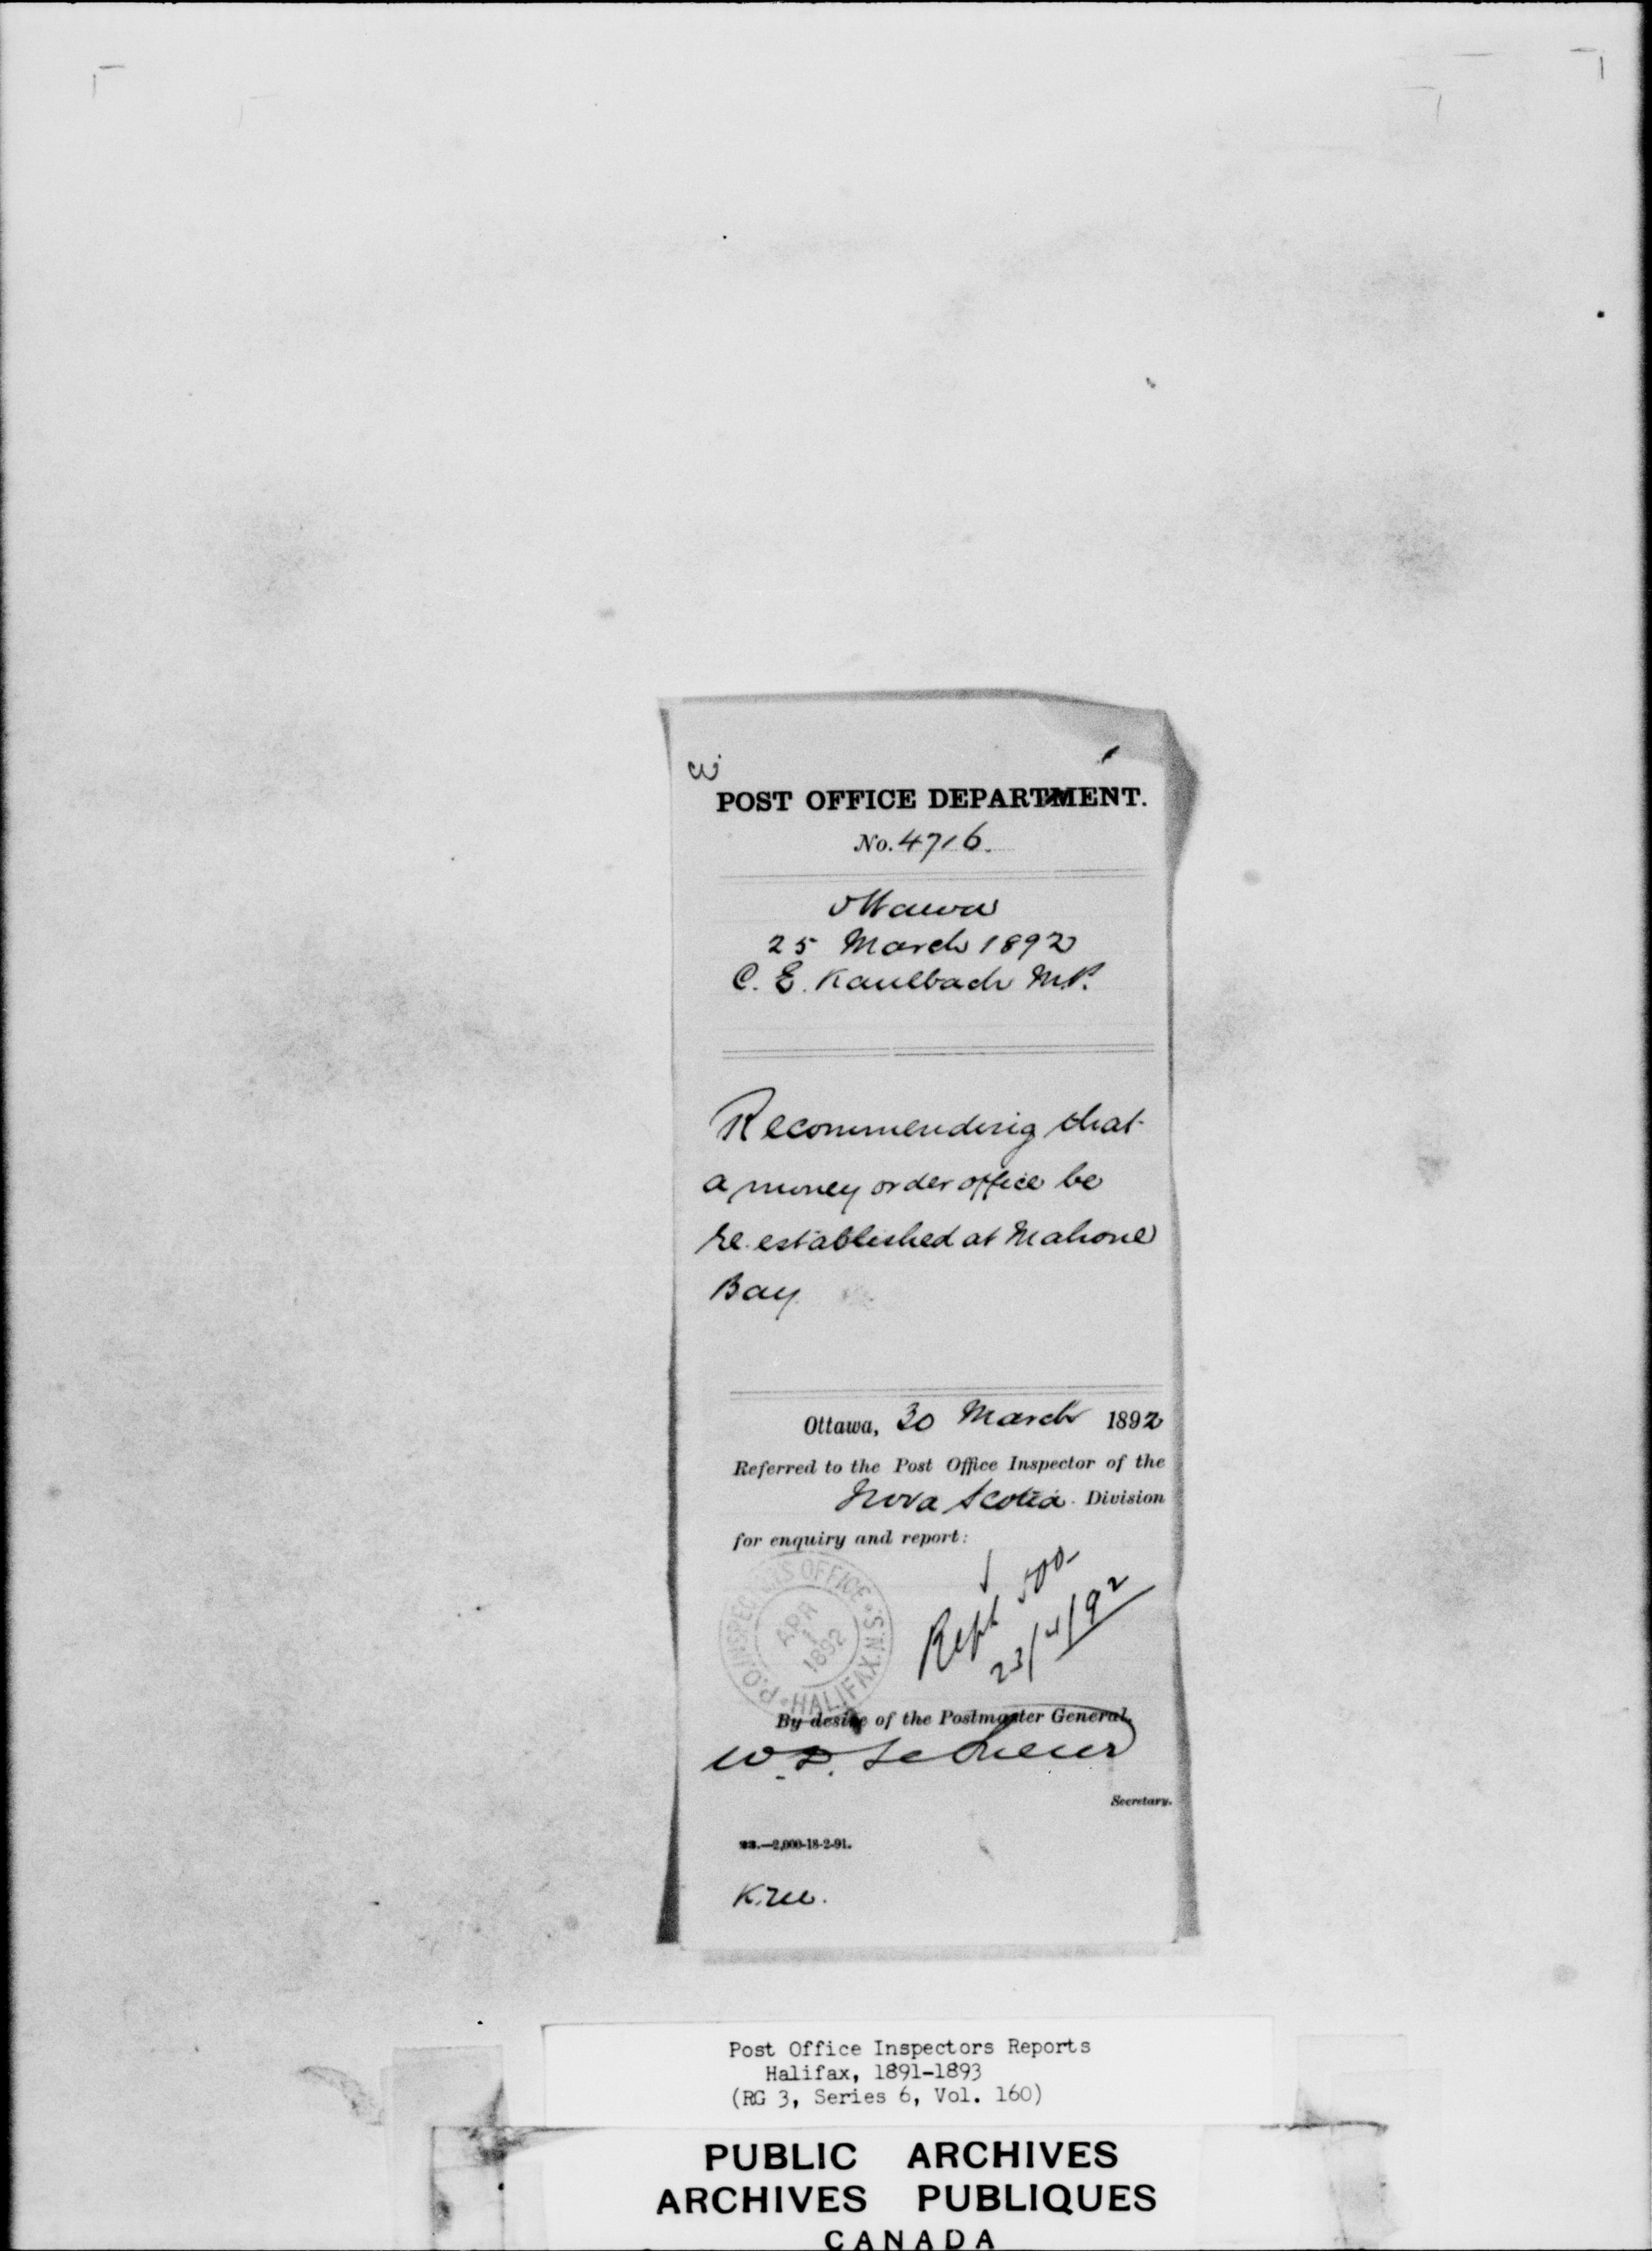 POST OFFICE DEPARTMENT.
No. 4716.
Ottawa
25 March 1892
C. E. Kaulbach M.P.
Recommending that
a money order office be
re-established at Mahone
Bay
Ottawa, 30 March 1892
Referred to the Post Office Inspector of the
Nova Scotia Division
for enquiry and report:
P.O. INSPECTORS OFFICE HALIFAX. N.S.
APR
1
1892
Rept 500
23/4/92
By desire of the Postmaster General,
W. D. LeSueur
Secretary.
23.—2,000-18-2-91.
Post Office Inspectors Reports
Halifax, 1891-1893
(RG 3, Series 6, Vol. 160)
PUBLIC ARCHIVES
ARCHIVES PUBLIQUES
CANADA